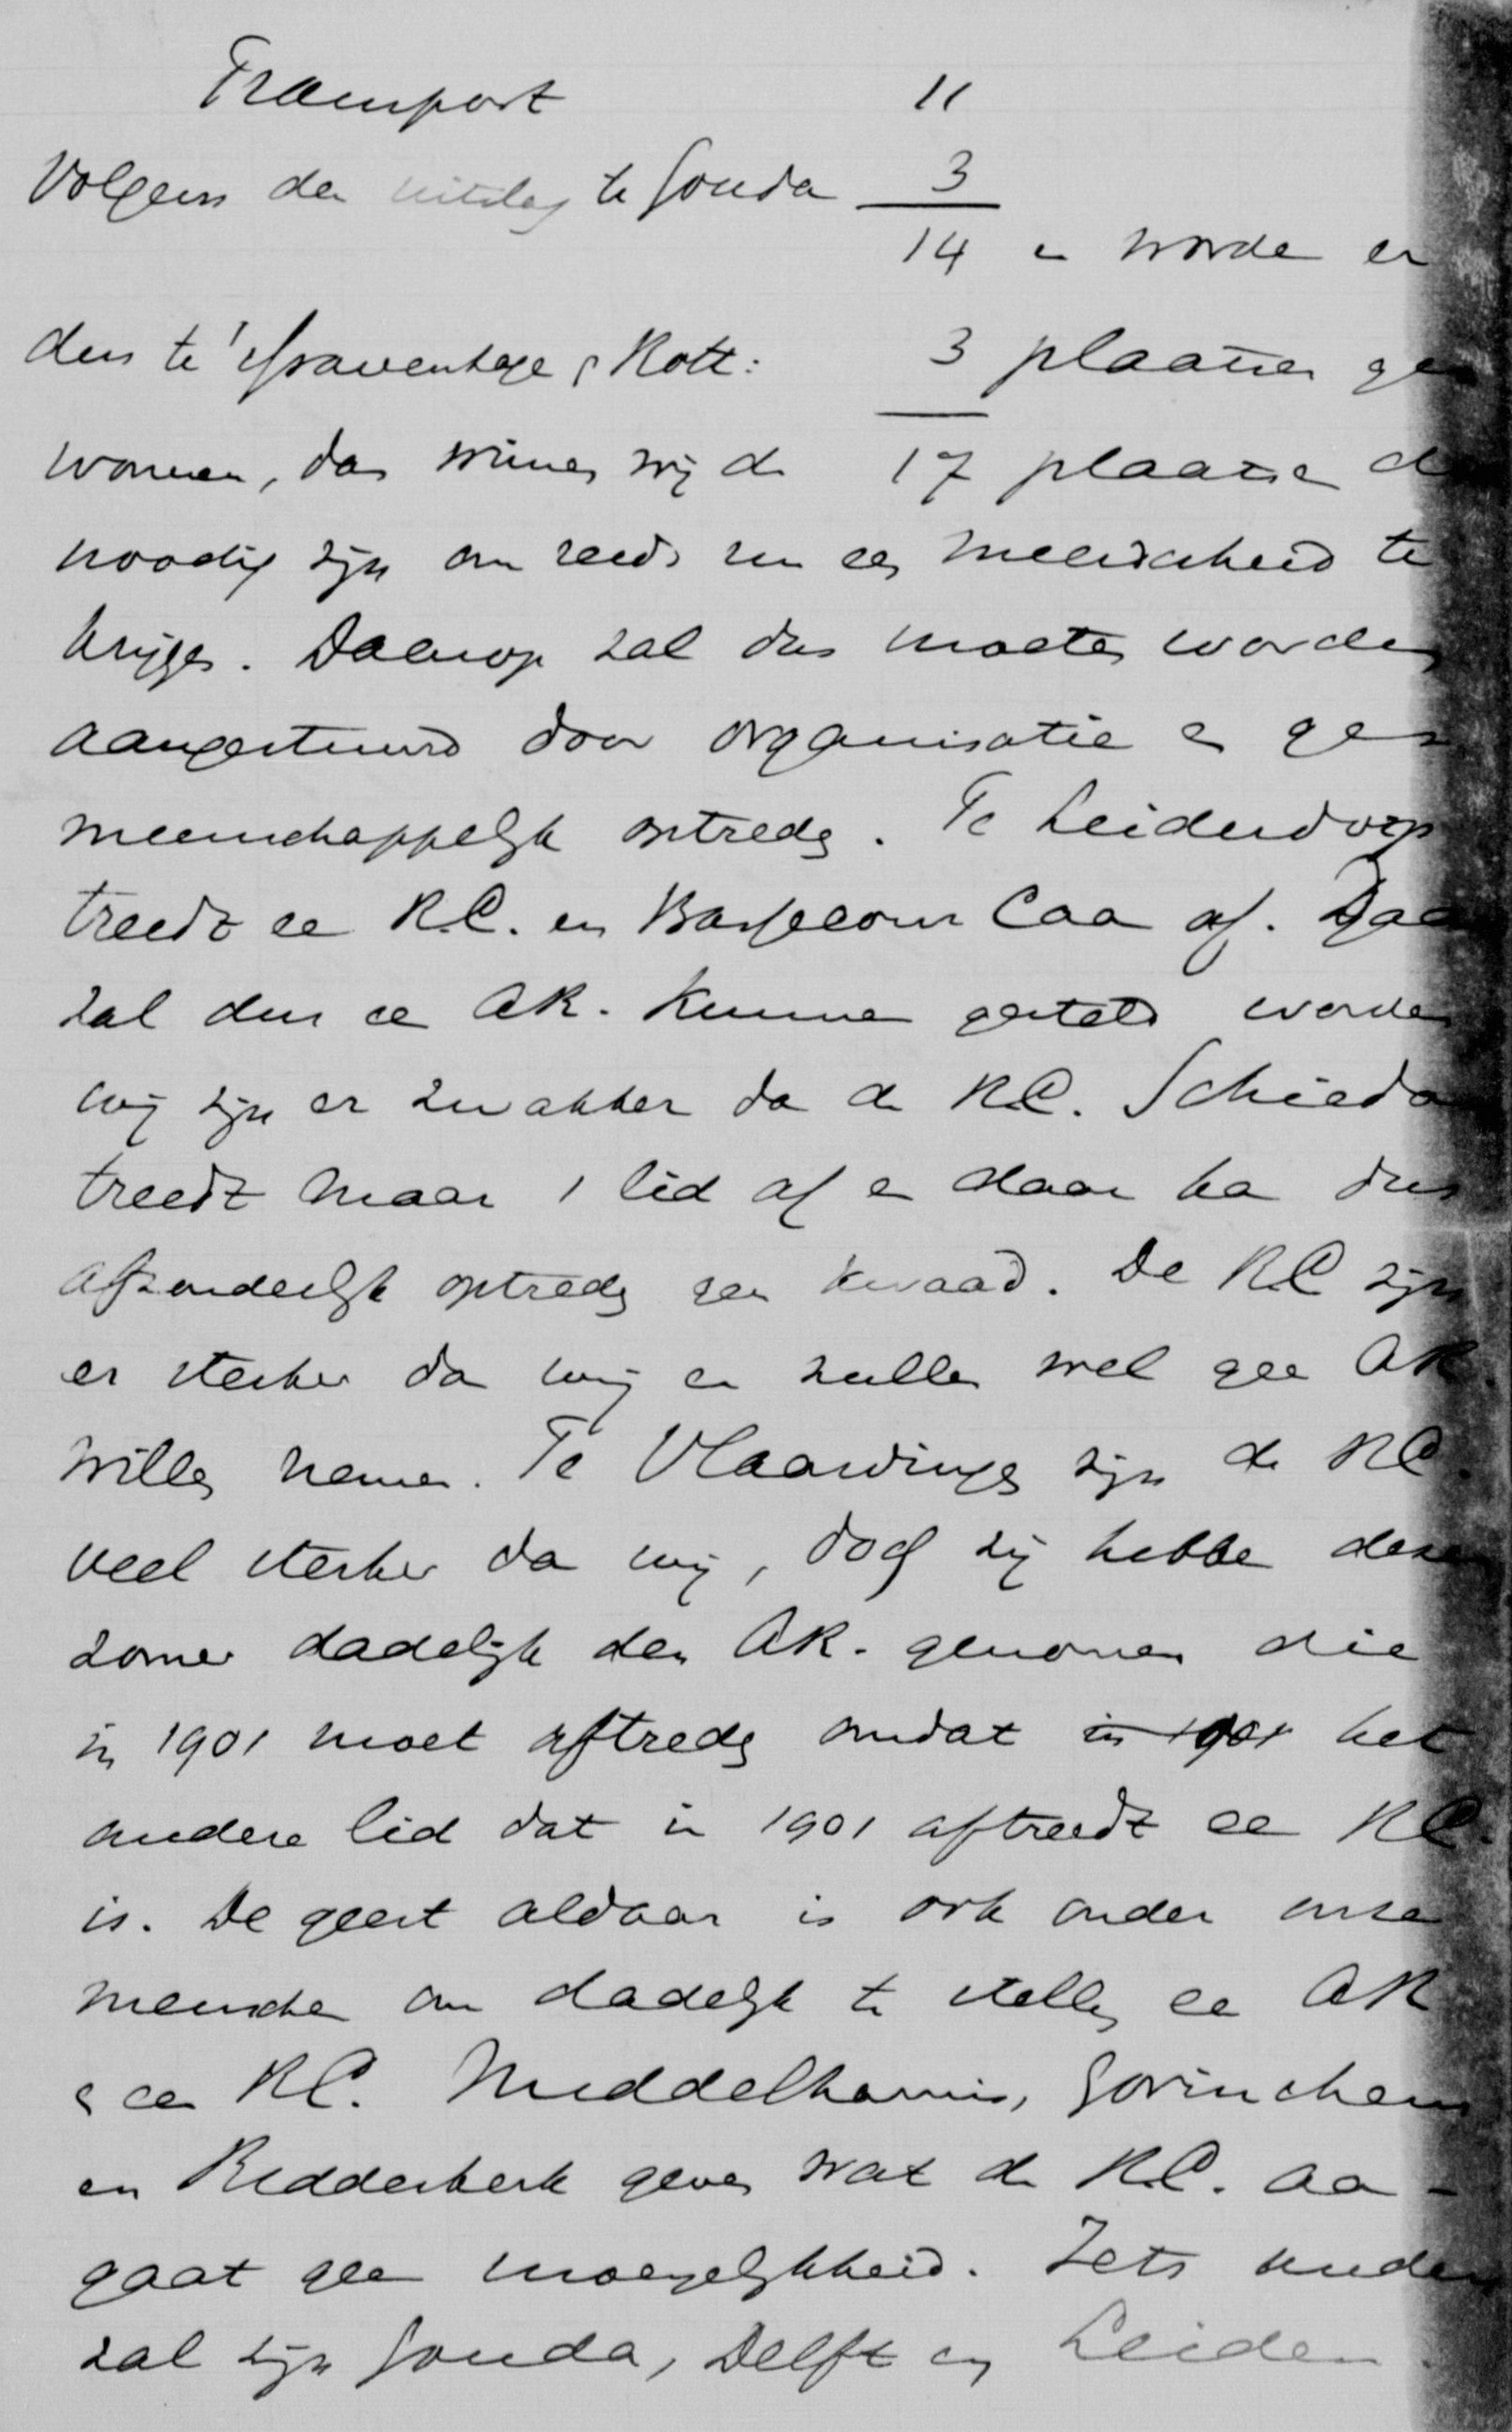 Transport 11
Volgens den uitslag te Gouda 3
14 en worden er
dus te 's Gravenhage & Rott: 3 plaatsen ge
wonnen, dan winnen wij de 17 plaatsen d
noodig zijn om reeds nu een meerderheid te
krijgen. Daarop zal dus moeten worden
aangestuurd door organisatie en ge
meenschappelijk optreden. Te Leiderdorp
treedt een R.C. en Bassecour Caan af. Daa
zal dus een AR. kunnen gesteld worden
wij zijn er zwakker dan de R.C. Schieda
treedt maar 1 lid af en daar kan dus
afzonderlijk optreden geen kwaad. De RC zijn
er sterker dan wij en zullen wel geen AR
willen nemen. Te Vlaardingen zijn de RC.
veel sterker dan wij, doch zij hebben dezen
zomer dadelijk den AR. genomen die
in 1901 moet aftreden omdat in 1901 het
andere lid dat in 1901 aftreedt een RC.
is. De geest aldaar is ook onder onze
menschen om dadelijk te stellen een AR
& een RC. Middelharnis, Gorinchem
en Ridderkerk geven wat de R.C. aan-
gaat geen moeyelijkheid. Iets anders
zal zijn Gouda, Delft en Leiden.